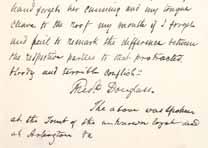 hand forget her cunning and my tongue
cleave to the roof my mouth if I forget
and fail to remark the difference between
the respective parties to that protracted
bloody and terrible conflict—
Fredk Douglass.
The above was spoken
at the Tomb of the unknown loyal dead
at Arlington Va